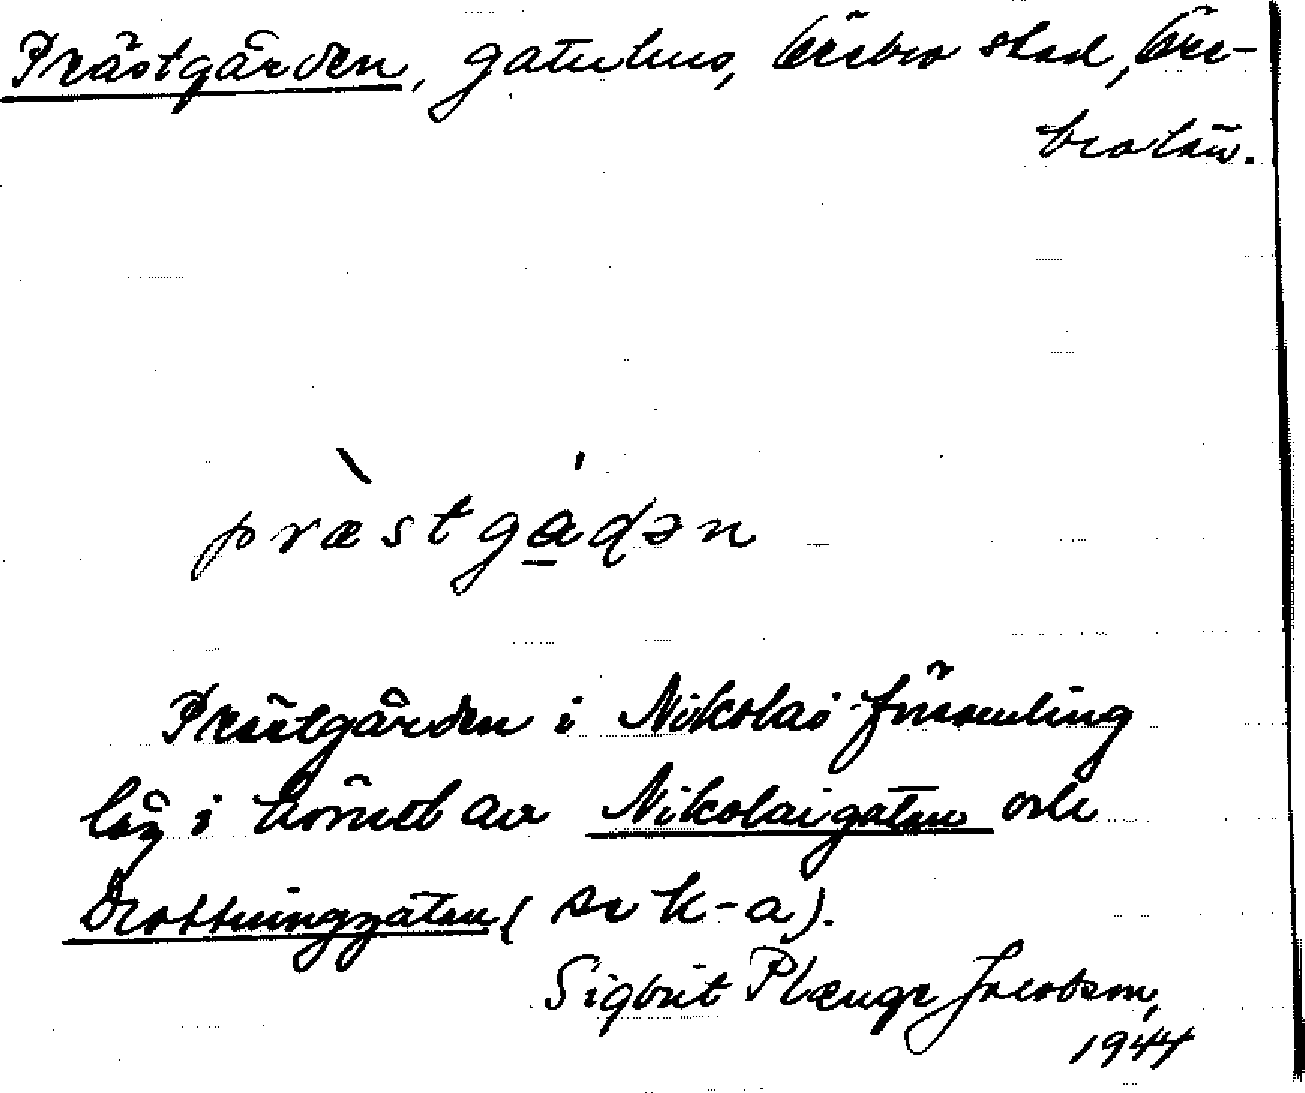 Prästgården, gatuhus, Örebro stad, Öre-
bro län.
præ̀stgá̱ɖən
Prästgården i Nikolai församling
låg i hörnet av Nikolaigatan och
Drottninggatan (se k-a).
Sigbrit Plænge Jacobson,
1944